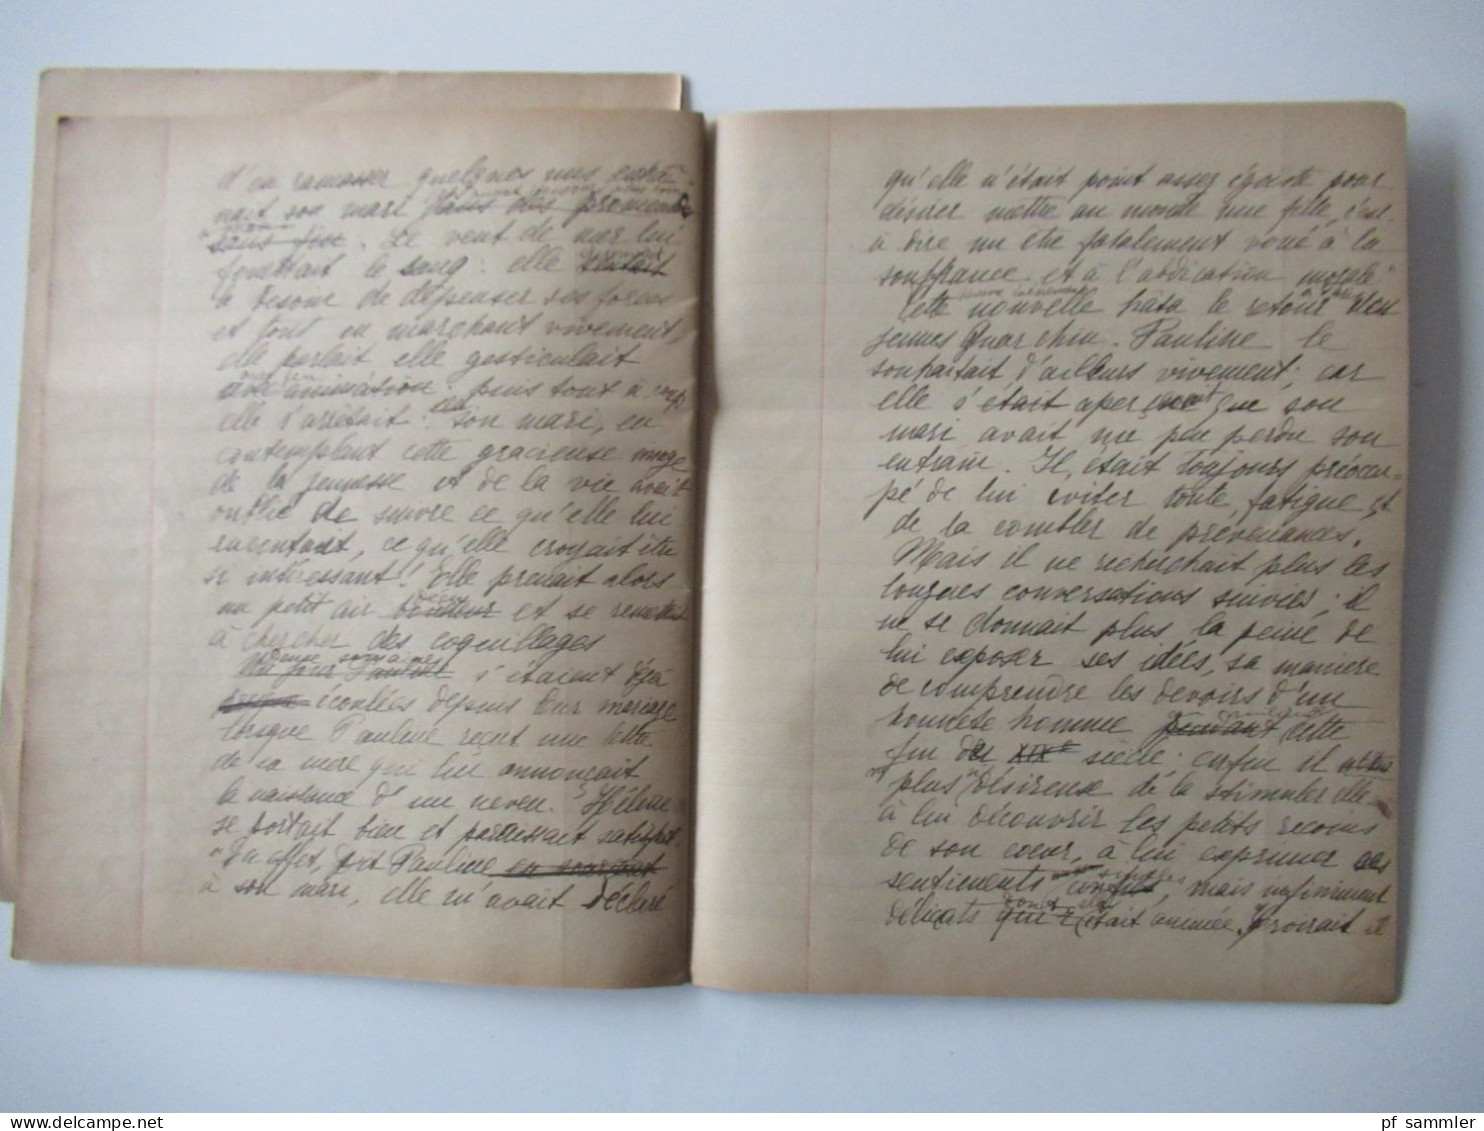 d'en ramasser quelques uns entraî-
nait son mari dans des promenades
sans fin. Le vent de mer lui
fouettait le sang : elle sentait
le besoin de dépenser ses forces
et tout en marchant vivement,
elle parlait elle gesticulait
avec animation. puis tout à coup
elle s'arrêtait : son mari, en
contemplant cette gracieuse image
de la jeunesse et de la vie avait
oublié de suivre ce qu'elle lui
racontait, ce qu'elle croyait être
si intéressant! Elle prenait alors
un petit air boudeur et se remettait
à chercher des coquillages
s'étaient déjà
écoulées depuis leur mariage
lorsque Pauline reçut une lettre
de sa mère qui lui annonçait
la naissance d'un neveu. Hélène
se portait bien et paraissait satisfaite.
"En effet, dit Pauline en souriant
à son mari, elle m'avait déclaré
qu'elle n'était point assez égoïste pour
désirer mettre au monde une fille, c'est-
à dire un être fatalement voué à la
souffrance et à l'abdication morale"
Cette nouvelle hâta le retour des
jeunes Pauline le
souhaitait d'ailleurs vivement; car
elle s'était aperçue que son
mari avait un peu perdu son
entrain. Il était toujours préoccu-
pé de lui éviter toute fatigue et
de la combler de prévenances.
Mais il ne recherchait plus les
longues conversations suivies; il
ne se donnait plus la peine de
lui exposer ses idées, sa manière
de comprendre les devoirs d'un
honnête homme pendant cette
fin du XIXe siècle : enfin il
plus désireuse de la stimuler elle
à lui découvrir les petits recoins
de son cœur, à lui exprimer les
sentiments confus, mais infiniment
délicats dont elle était animée. Croirait il
pf sammler